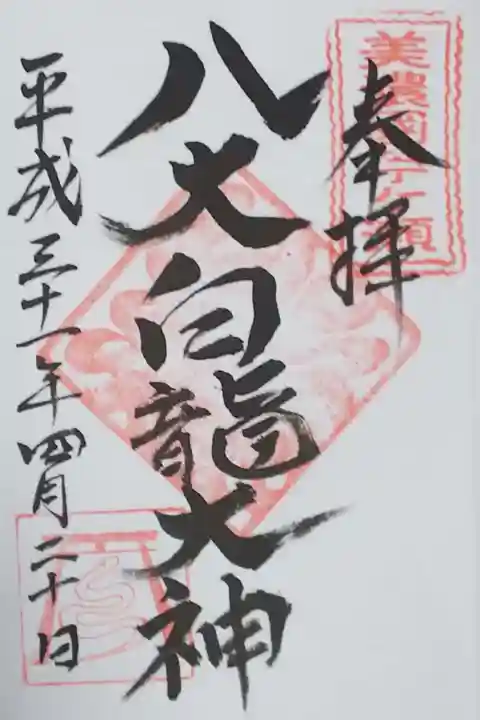 美濃國宇ヶ願
奉拝
八大白龍大神
平成三十一年四月二十日